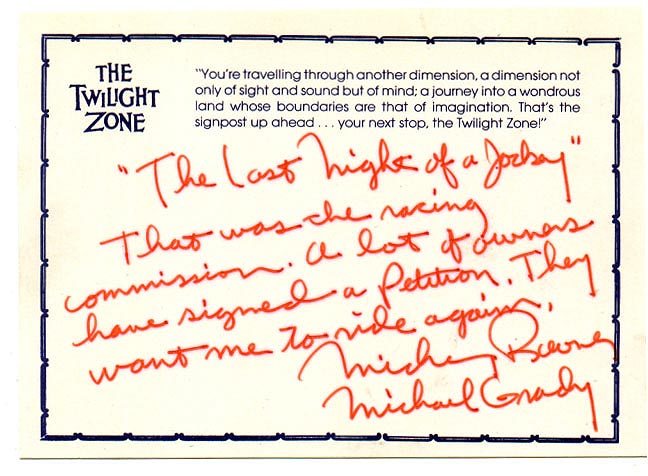 THE
TWILIGHT
ZONE
"You're travelling through another dimension, a dimension not
only of sight and sound but of mind; a journey into a wondrous
land whose boundaries are that of imagination. That's the
signpost up ahead . . . your next stop, the Twilight Zone!"
"The Last Night of a Jockey"
That was the racing
commission. A lot of owners
have signed a Petition. They
want me to ride again.
Mickey Rooney
Michael Grady